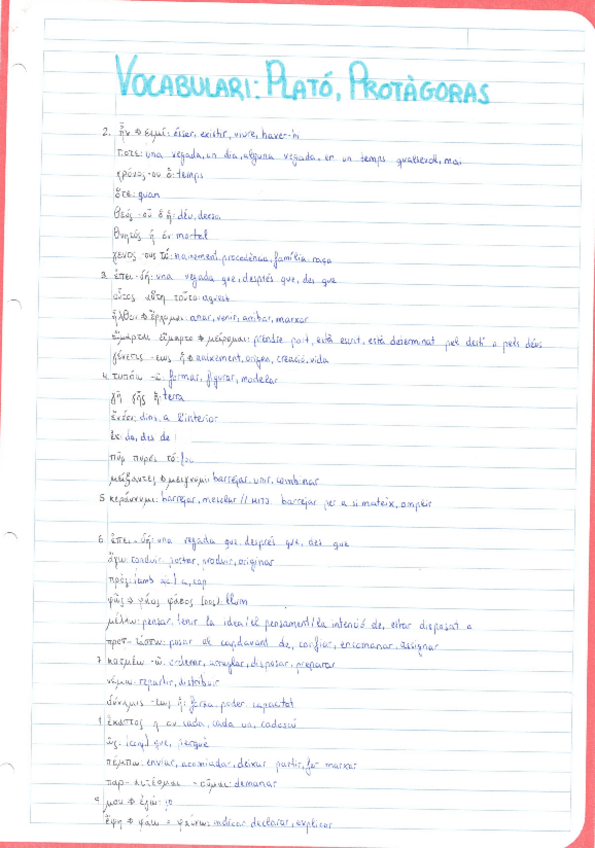 VOCABULARI: PLATÓ, PROTÀGORAS
2. ἦν → εἰμί: ésser, existir, viure, haver-hi
ποτε: una vegada, un dia, alguna vegada, en un temps qualsevol, mai
χρόνος -ου ὁ: temps
ὅτε: quan
θεός -οῦ ὁ ἡ: déu, deessa
θνητός ή όν: mortal
γένος -ους τό: naixement, procedència, família, raça
3. ἐπει-δή: una vegada que, després que, des que
οὗτος αὕτη τοῦτο: aquest
ἦλθον → ἔρχομαι: anar, venir, arribar, marxar
εἵμαρται εἵμαρτο → μείρομαι: prendre part, està escrit, està determinat pel destí o pels déus
γένεσις -εως ἡ → naixement, origen, creació, vida
4. τυπόω -ῶ: formar, figurar, modelar
γῆ γῆς ἡ: terra
ἔνδον: dins, a l'interior
ἐκ: de, des de
πῦρ πυρός τό: foc
μείξαντες → μείγνυμι: barrejar, unir, combinar
5 κεράννυμι: barrejar, mesclar // MITJ. barrejar per a si mateix, omplir
6 ἐπει-δή: una vegada que, després que, des que
ἄγω: conduir, portar, produir, originar
πρός: amb ac. a, cap
φῶς → φάος φάεος (ους): llum
μέλλω: pensar, tenir la idea/el pensament/la intenció de, estar disposat a
προσ-τάττω: posar al capdavant de, confiar, encomanar, assignar
7 κοσμέω -ῶ: ordenar, arreglar, disposar, preparar
νέμω: repartir, distribuir
δύναμις -εως ἡ: força, poder, capacitat
8 ἕκαστος η ον cada, cada un, cadascú
ὡς: (conj.) que, perquè
πέμπω: enviar, acomiadar, deixar partir, fer marxar
παρ-αιτέομαι -οῦμαι: demanar
9 μου → ἐγώ: jo
ἔφη → φάω = φαίνω: indicar, declarar, explicar